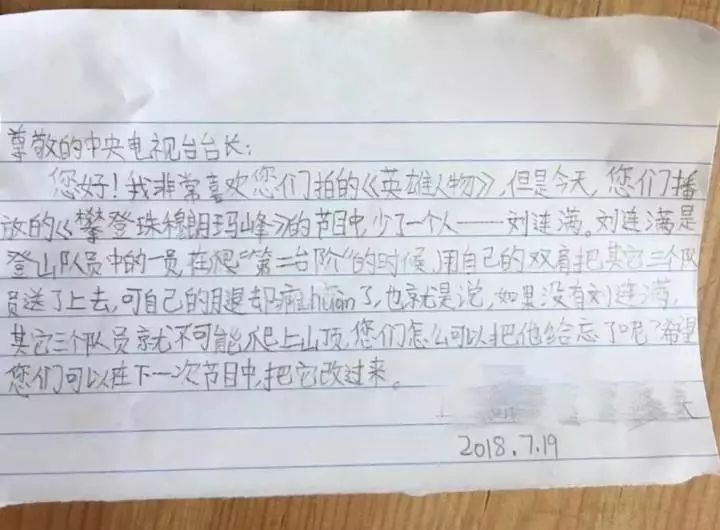 尊敬的中央电视台台长:
您好!我非常喜欢您们拍的《英雄人物》,但是今天,您们播
放的《攀登珠穆朗玛峰》的节目中,少了一个人——刘连满。刘连满是
登山队员中的一员,在爬“第二台阶”的时候,用自己的双肩把其它三个队
员送了上去,可自己的腿却瘫huàn了,也就是说,如果没有刘连满,
其它三个队员就不可能爬上山顶,您们怎么可以把他给忘了呢?希望
您们可以在下一次节目中,把它改过来。
天
2018.7.19